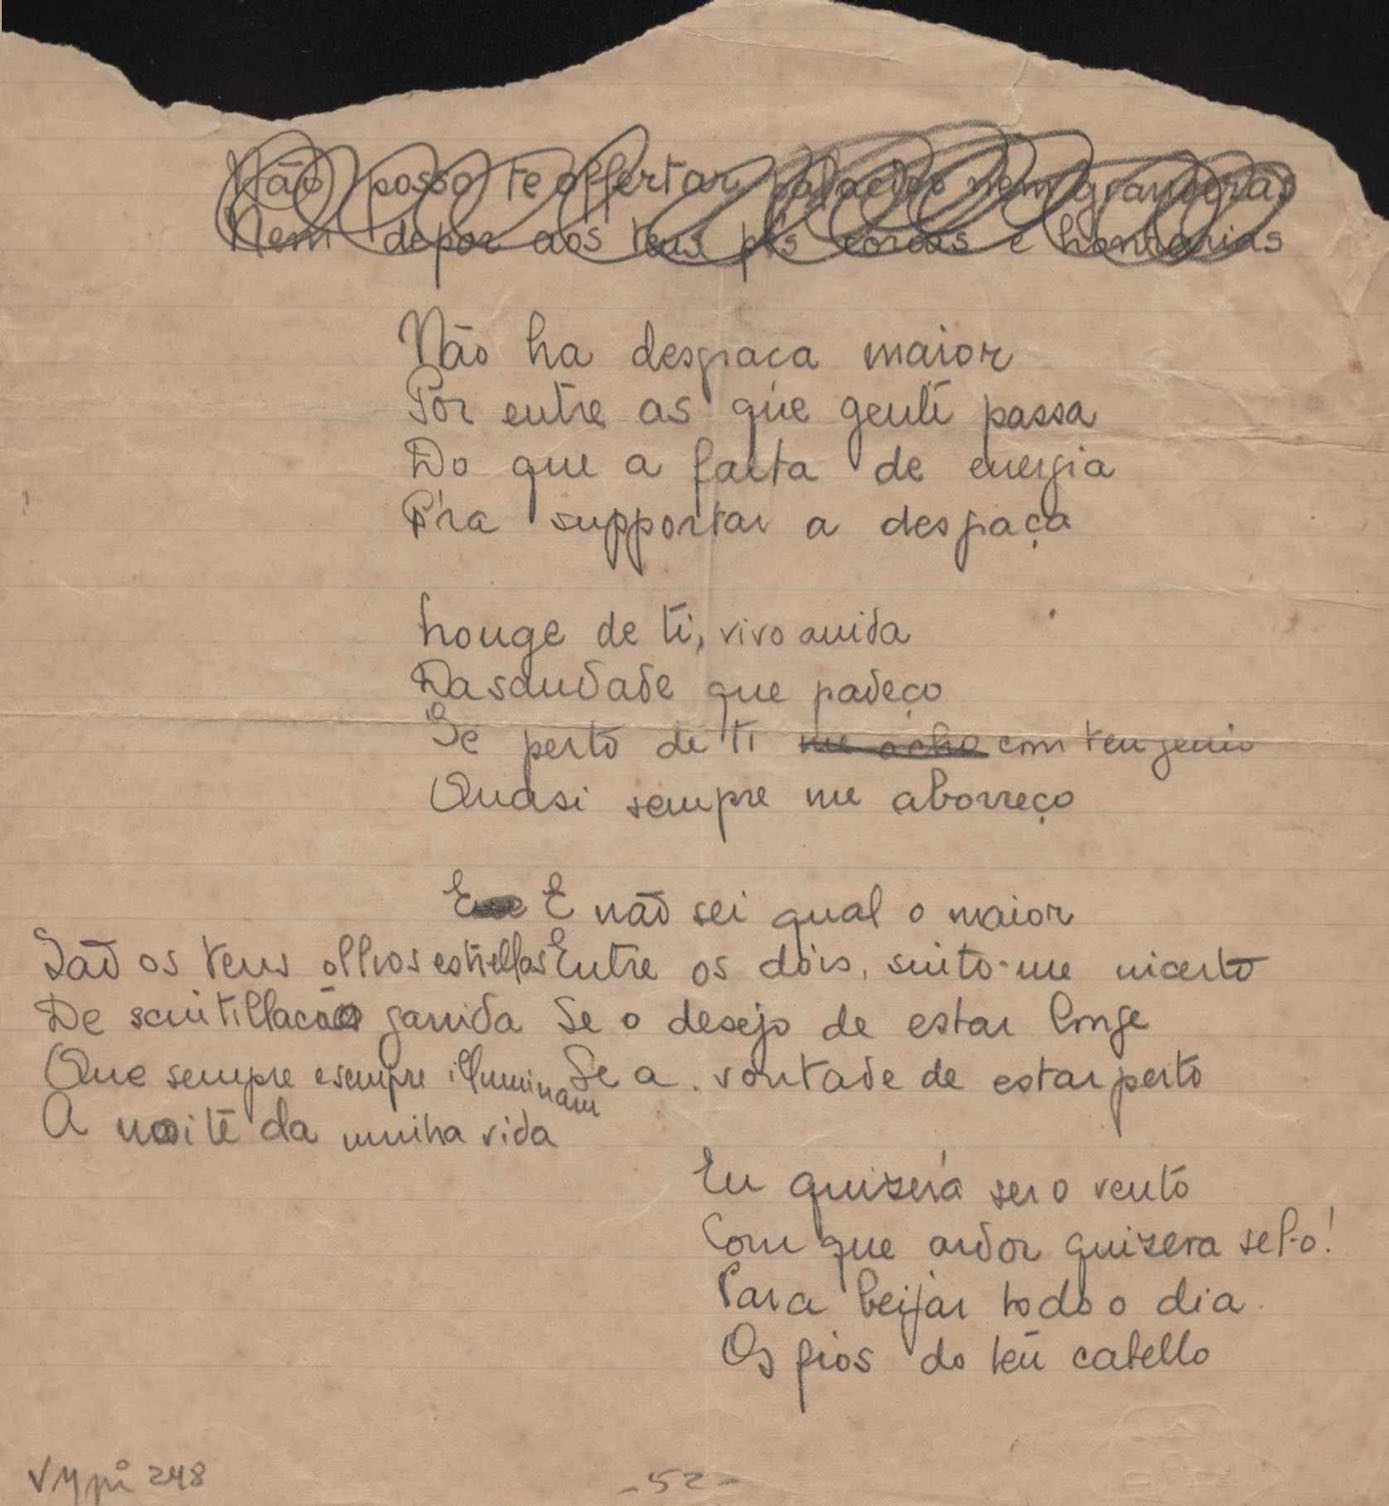 Não posso te offertar, palacios nem grandezas
Nem depor aos teus pés coroas e honrarias
Não ha desgraca maior
Por entre as que gente passa
Do que a falta de energia
P'ra supportar a desgraça
Longe de ti, vivo anida
Da saudade que padeço
Se perto de ti me acho com teu genio
Quasi sempre me aborreço
E não sei qual o maior
Entre os dois, sinto-me incerto
Se o desejo de estar longe
Se a vontade de estar perto
São os teus olhos estrellas
De scintillação garrida
Que sempre e sempre illuminam
A noite da minha vida
Eu quizera ser o vento
Com que ardor quizera sel-o!
Para beijar todo o dia
Os fios do teu cabello
VMpi 248
- 52 -